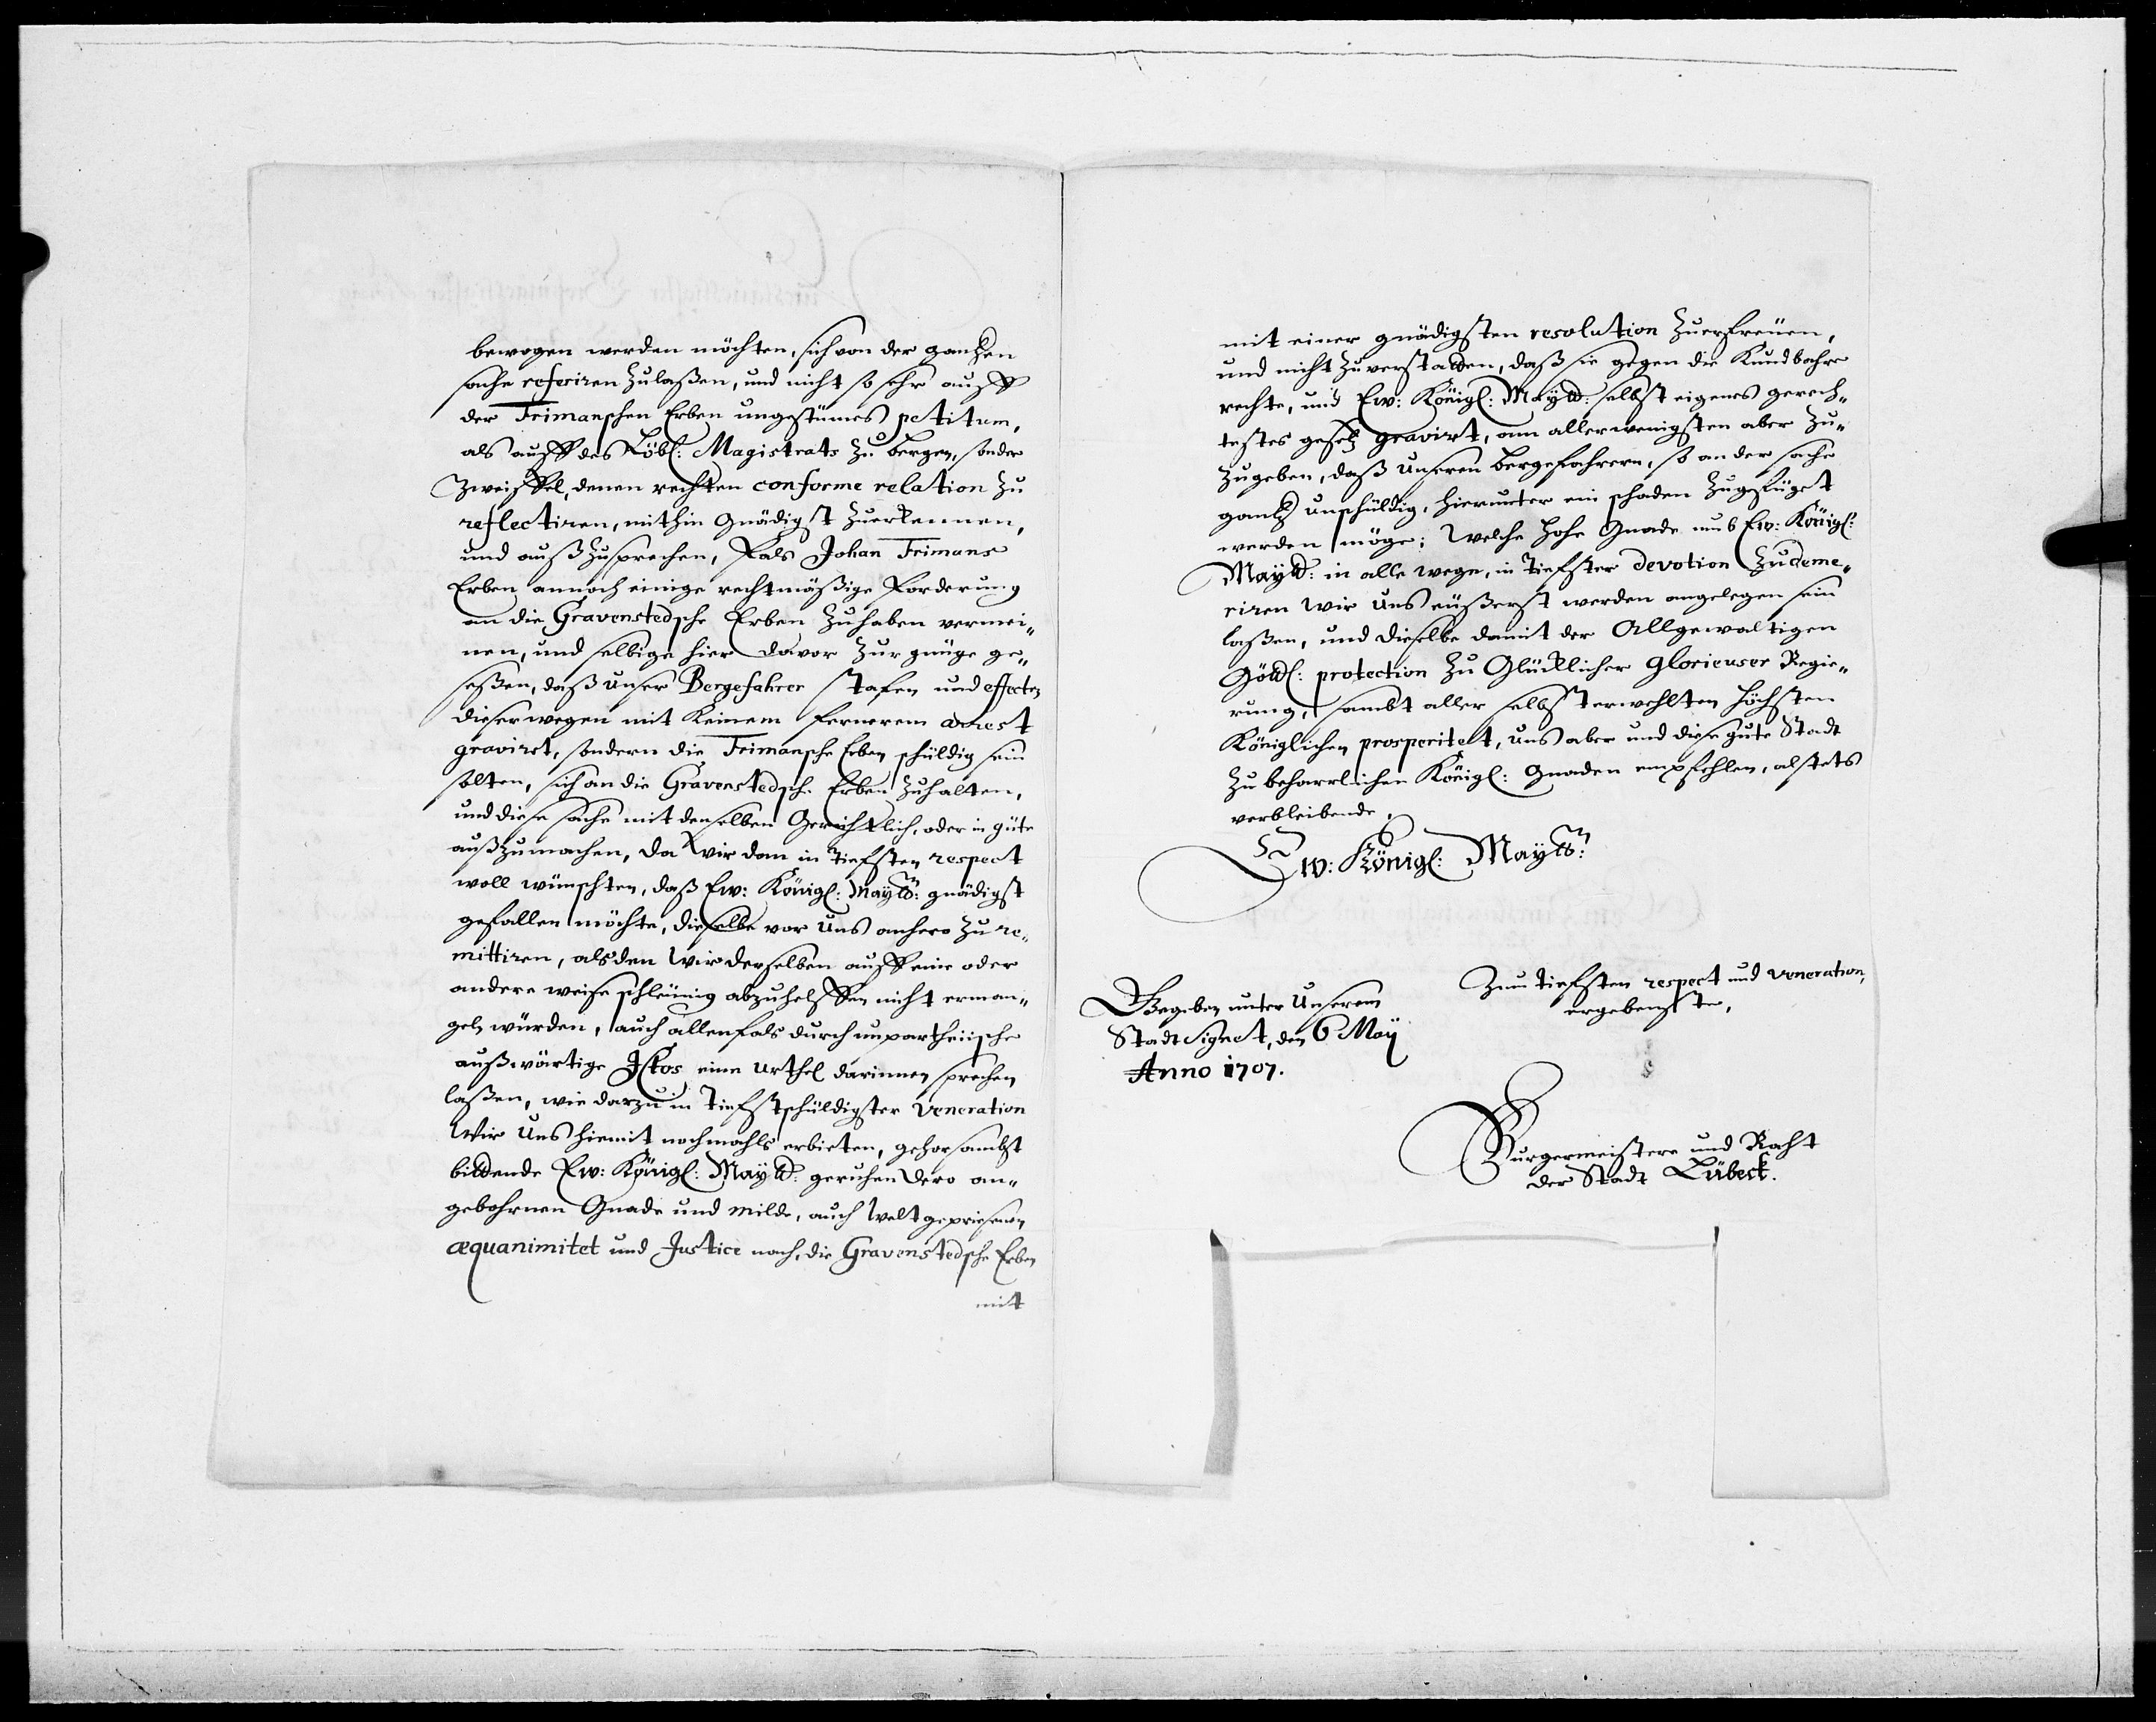 bewogen werden möchten, sich von der gantzen
sache referiren zulaßen, und nicht so sehr auff
der Frimanschen Erben ungestümes petitum,
als auff des Löbl: Magistrats zu bergen, sonder
Zweiffel, denen rechten conforme relation zu
reflectiren, mithin Gnädigst zuerkennen,
und außzusprechen, Fals Johan Frimans
Erben annoch einige rechtmäßige Forderung
an die Gravenstedsche Erben zuhaben vermei„
nen, und selbige hier davor zur gnüge ge„
seßen, daß unser Bergefahrer stafen und effecten
dieserwegen mit Keinem fernerem arrest
gravirt, sondern die Frimansche Erben schüldig sein
solten, sich an die Gravenstedsche Erben zuhalten,
und diese sache mit denselben Gerichtlich, oder in güte
außzumachen, da Wir dan in tiefsten respect
woll wünschten, daß Ew: Königl: Maytt: gnädigst
gefallen möchte, dieselbe vor uns anhero zu re„
mittiren, alsden Wir derselben auff eine oder
andere weise schleünig abzuhelffen nicht erman„
geln würden, auch allenfals durch unpartheiische
außwärtige Ictos eine urthel darinnen sprechen
laßen, wie darzu in Tiefstschüldigster veneration
Wir Uns hiemit nochmahls erbieten, gehorsambst
bittende Ew: Königl: Maytt: geruhen dero an„
gebohrnen Gnade und milde, auch Weltgepriesenen
æquanimitet und Justice nach, die Gravenstedsche Erben
mit
mit einer gnädigsten resolution zuerfreüen,
und nicht zuverstatten, daß sie gegen die Kundbahre
rechte, und Ew: Königl: Maytt: selbst eigenes gerech„
testes gesetz gravirt, am allerwenigsten aber zu„
zugeben, daß unseren bergefahrern, so an der sache
gantz unschüldig, hierunter ein schaden zugefüget
werden möge; Welche hohe Gnade umb Ew: Königl:
Maytt: in alle wege, in tiefster devotion zu deme„
riren Wir uns eüßerst werden angelegen sein
laßen, und dieselbe damit der Allgewaltigen
Göttl: protection zu Glücklicher glorieuser Regie„
rung, sambt aller selbst erwehlten höchsten
Königlichen prosperitet, uns aber und diese gute Stadt
zu beharrlichen Königl: Gnaden empfehlen, alstets
verbleibende,
Ew: Königl: Maytt:
Zum tiefsten respect und veneration,
ergebenste,
Gegeben unter Unserem
Stadt Signet, den 6 May
Anno 1707.
Burgermeistere und Raht
der Stadt Lübeck.